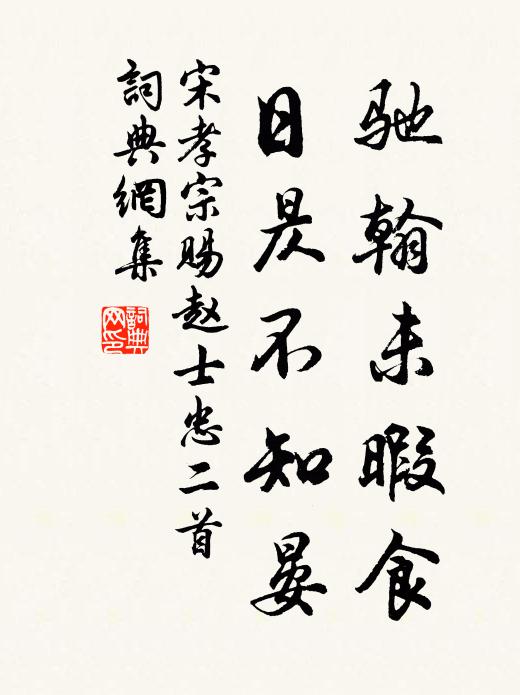 馳翰未暇食
日昃不知晏
宋孝宗賜赵士忠二首
詞典網集
詞典网印